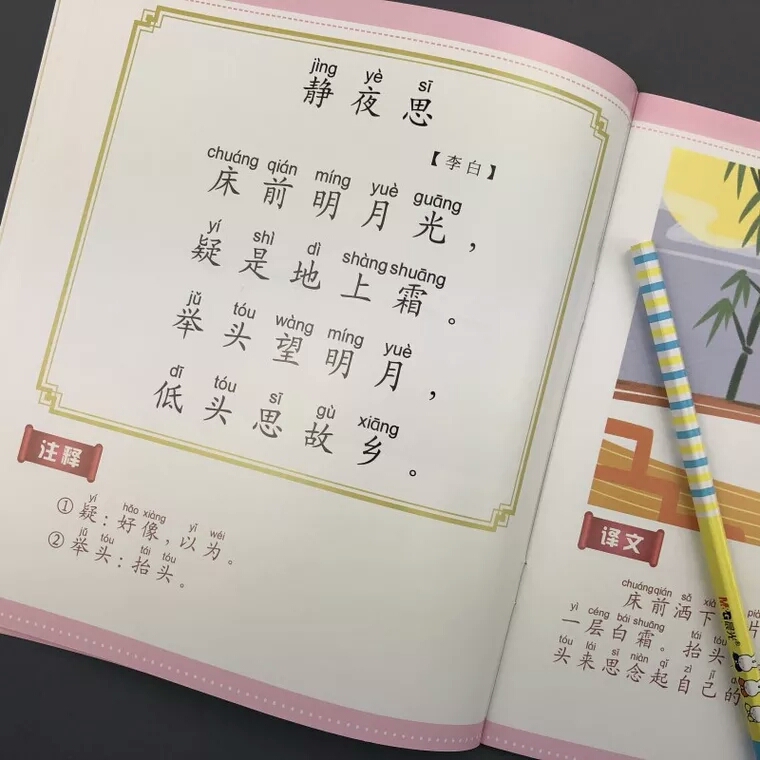 jìng yè sī
静夜思
【李白】
chuáng qián míng yuè guāng
床前明月光，
yí shì dì shàng shuāng
疑是地上霜。
jǔ tóu wàng míng yuè
举头望明月，
dī tóu sī gù xiāng
低头思故乡。
注释
yí hǎo xiàng yǐ wéi
①疑：好像，以为。
jǔ tóu tái tóu
②举头：抬头。
译文
chuáng qián sǎ xià piàn
床前洒下片
yì céng bái shuāng tái tóu
一层白霜。抬头
tóu lái sī niàn qǐ zì jǐ
头来思念起自己的
M&G 晨光